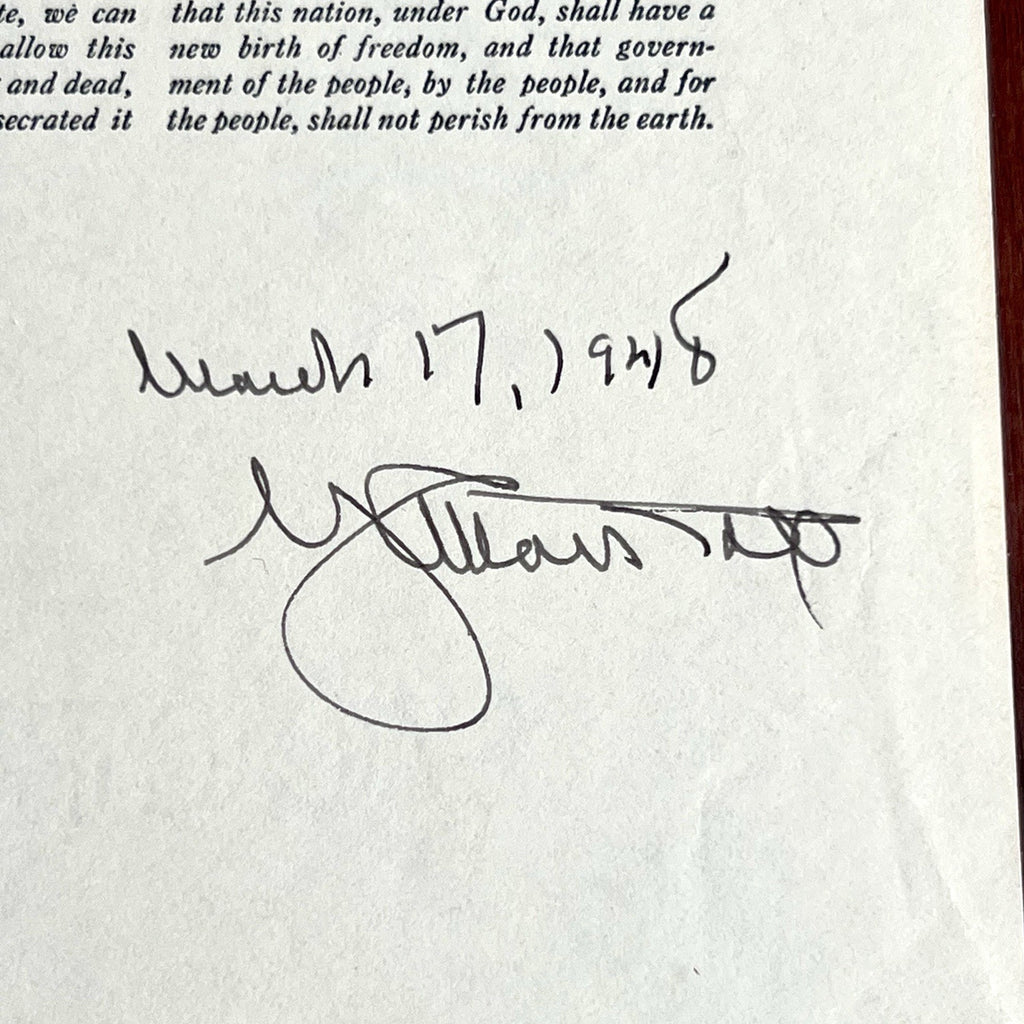 te, we can
allow this
and dead,
secrated it
that this nation, under God, shall have a
new birth of freedom, and that govern-
ment of the people, by the people, and for
the people, shall not perish from the earth.
March 17, 1948